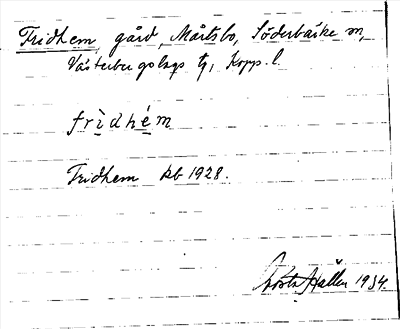 Fridhem, gård, Mårtsbo, Söderbärke sn,
Västerbergslags tg, Kopp. l.
frìdhé̱m
Fridhem kb 1928.
Gösta Hallén 1934.